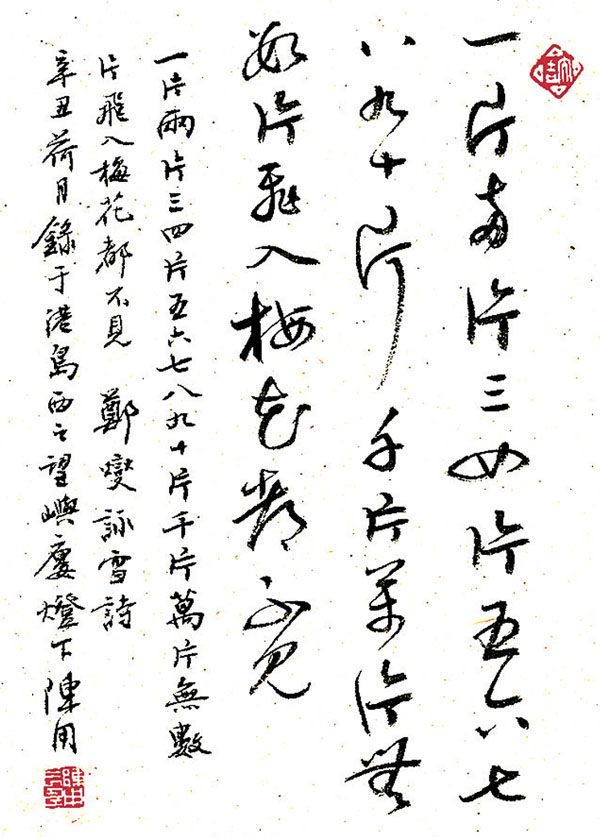 一片兩片三四片五六七
八九十片千片萬片無
數片飛入梅花都不見
一片兩片三四片五六七八九十片千片萬片無數
片飛入梅花都不見 鄭燮詠雪詩
辛丑荷月錄于港島西之望嶼廔燈下陳用